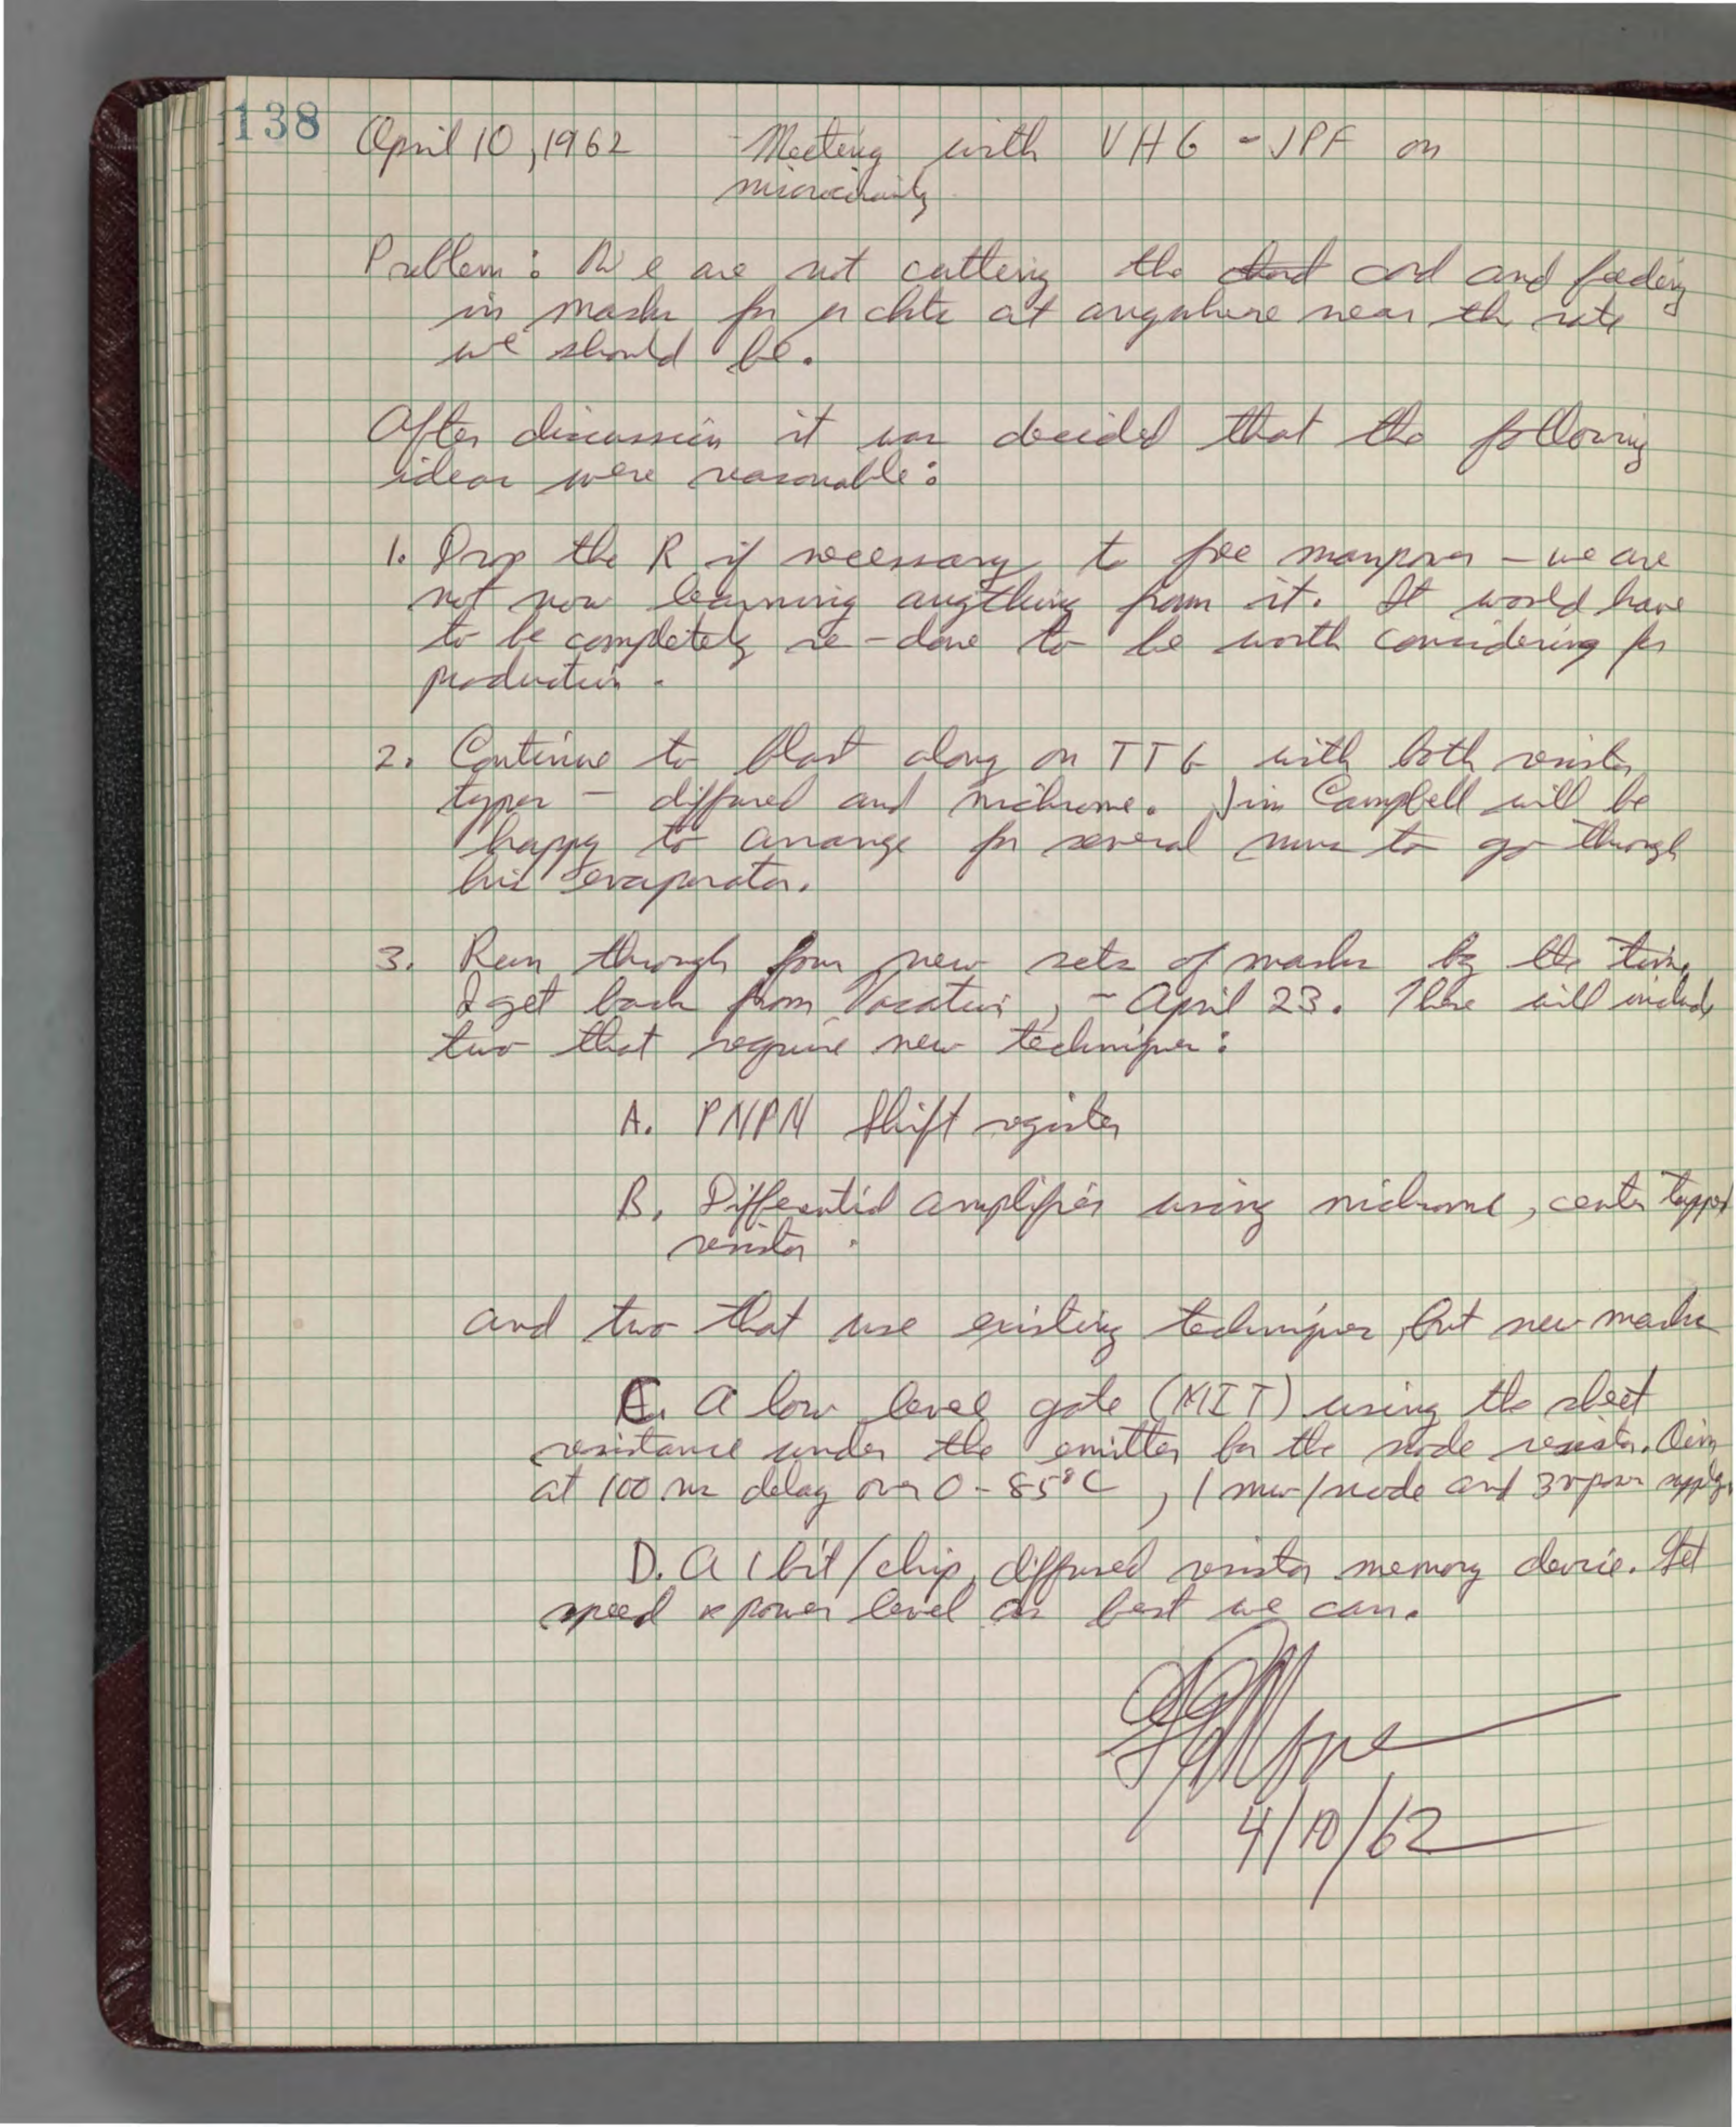 138
April 10, 1962 - Meeting with VHG - JPF on
microcircuitry
Problem: We are not cutting the cord and feeding
in masks for μckts at anywhere near the rate
we should be.
After discussion it was decided that the following
ideas were reasonable:
1. Drop the R if necessary to free manpower - we are
not now learning anything from it. It would have
to be completely re-done to be worth considering for
production.
2. Continue to blast along on TTG with both resistor
types - diffused and nichrome. Jim Campbell will be
happy to arrange for several runs to go through
his evaporator.
3. Run through four new sets of masks by the time
I get back from Vacation, ~ April 23. These will include
two that require new techniques:
A. PNPN Shift register
B. Differential amplifier using nichrome, center tapped
resistor.
and two that use existing techniques, but new masks
C. A low level gate (MIT) using the sheet
resistance under the emitter for the node resistor. Aim
at 100 ns delay over 0-85°C, 1 mw/node and 3v power supply.
D. A 1 bit/chip, diffused resistor memory device. Set
speed & power level as best we can.
GEMoore
4/10/62